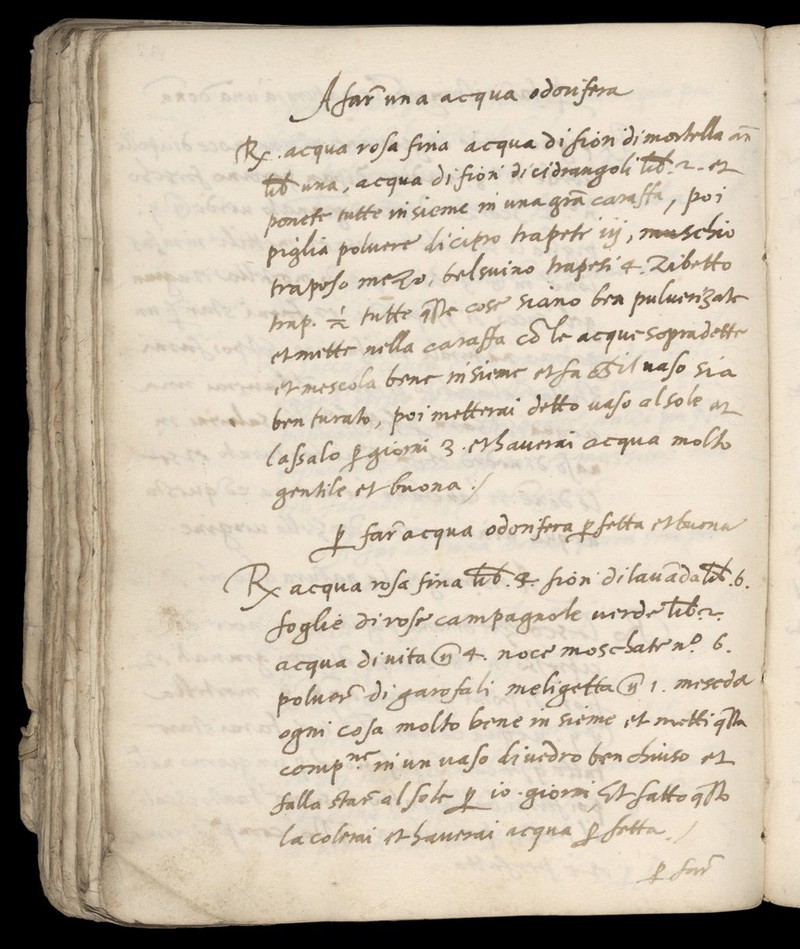 A far una acqua odorifera
Rx. acqua rosa fina acqua di fiori di mortella añ
lib una, acqua di fiori di cidrangoli lib. 2. et
ponete tutte insieme in una grã caraffa, poi
piglia polvere di cipro trapete iij, muschio
traposo mezo, belsuino trapesi 4. Zibetto
trap. ½ tutte q̃ste cose siano ben pulverizate
et mette nella caraffa cõ le acque sopradette
et mescola bene insieme et fa ch̃ il vaso sia
ben turato, poi metterai detto vaso al sole et
lassalo p giorni 3. et haverai acqua molto
gentile et buona ./
p far acqua odorifera pfetta et buona
Rx acqua rosa fina lib. 4. fiori di lavãda lib. 6.
foglie di rose campagnole verde lib. 2.
acqua di vita 4. noce moschate nº. 6.
polver̃ di garofali meligetta 1. meseda
ogni cosa molto bene insieme et metti q̃sta
comp.ne in un vaso di vedro ben chiuso et
falla star̃ al sole p io. giorni, Et fatto q̃sto
la colerai et haverai acqua pfetta ./
p far̃